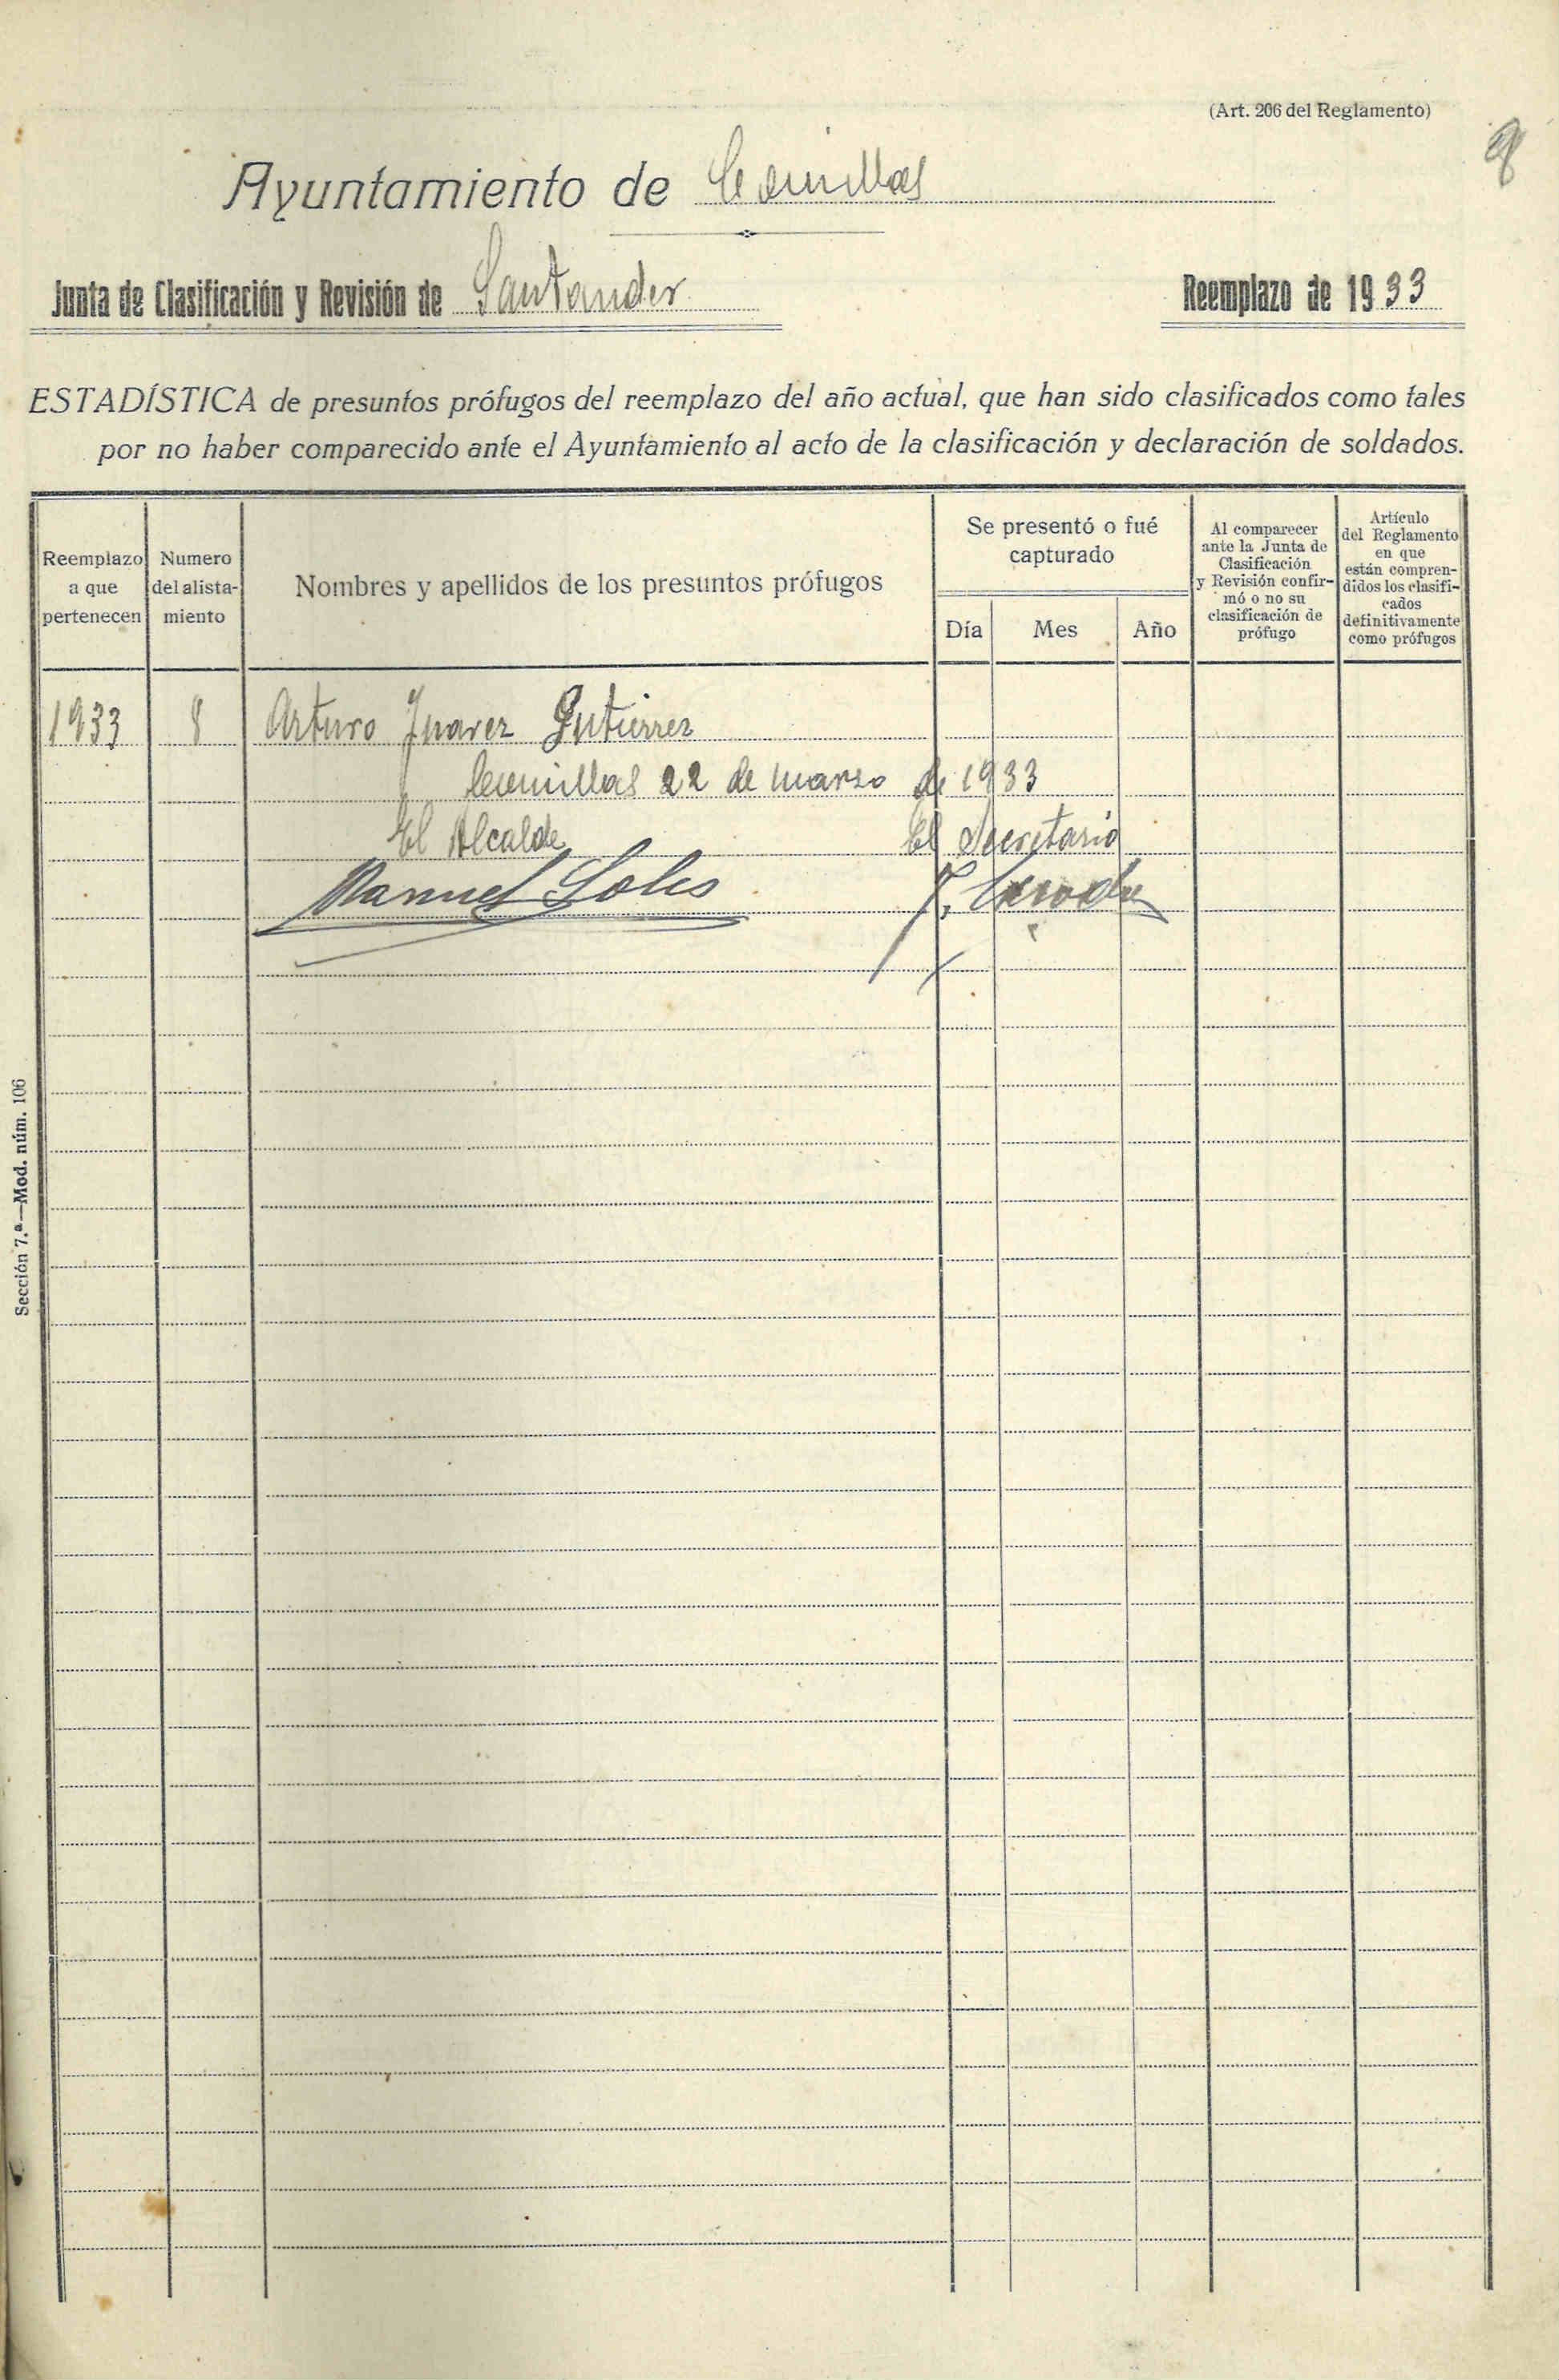 (Art. 206 del Reglamento)
Ayuntamiento de Comillas
Junta de Clasificación y Revisión de Santander
Reemplazo de 1933
ESTADÍSTICA de presuntos prófugos del reemplazo del año actual, que han sido clasificados como tales
por no haber comparecido ante el Ayuntamiento al acto de la clasificación y declaración de soldados.
Reemplazo
a que
pertenecen
Numero
del alista-
miento
Nombres y apellidos de los presuntos prófugos
Se presentó o fué
capturado
Día
Mes
Año
Al comparecer
ante la Junta de
Clasificación
y Revisión confir-
mó o no su
clasificación de
prófugo
Artículo
del Reglamento
en que
están compren-
didos los clasifi-
cados
definitivamente
como prófugos
1933 8 Arturo Juarez Gutierrez
Comillas 22 de marzo de 1933
El Alcalde El Secretario
Manuel Solis
Sección 7.ª—Mod. núm. 106